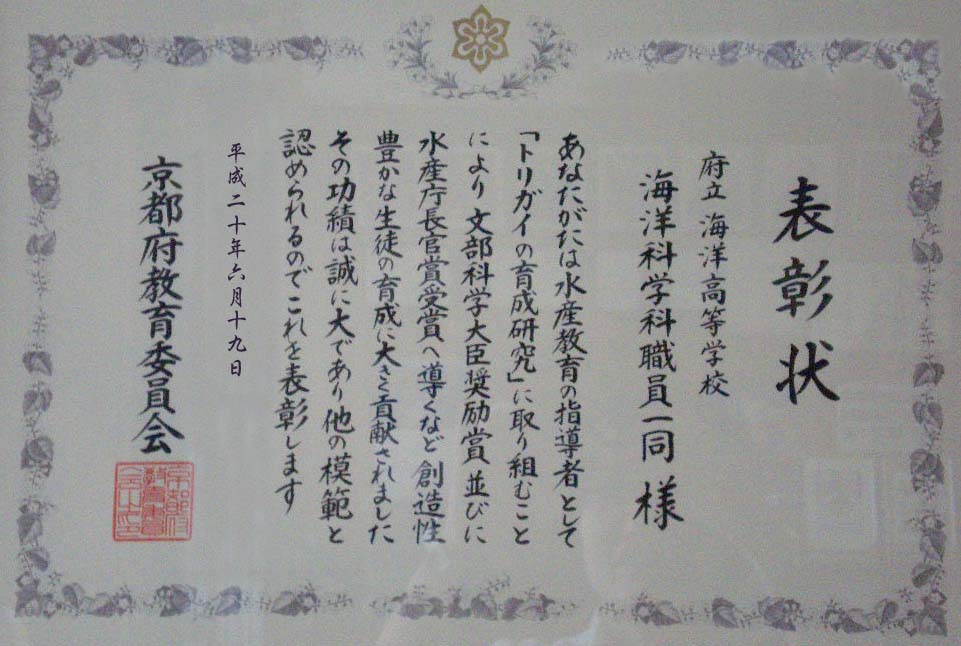 表彰状
府立 海洋高等学校
海洋科学科職員一同 様
あなたがたは水産教育の指導者として
「トリガイの育成研究」に取り組むこと
により 文部科学大臣奨励賞 並びに
水産庁長官賞受賞へ導くなど 創造性
豊かな生徒の育成に大きく貢献されました
その功績は誠に大であり他の模範と
認められるのでこれを表彰します
平成二十年六月十九日
京都府教育委員会